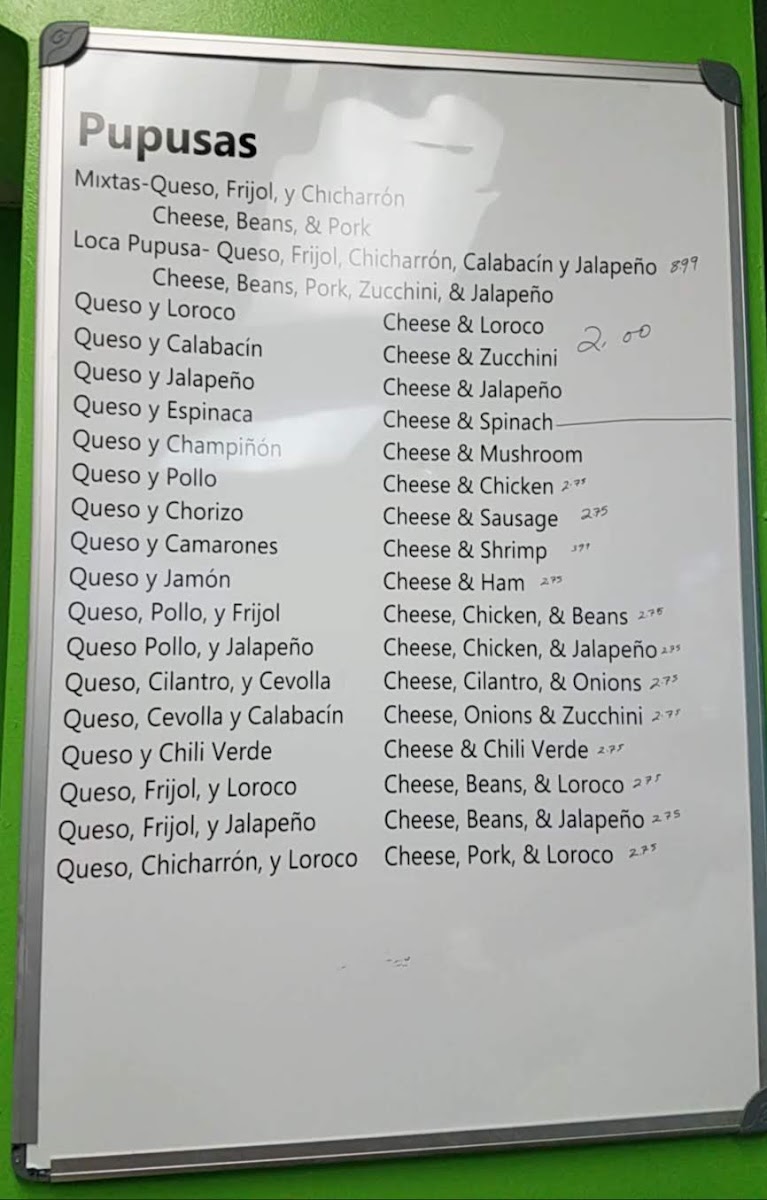 Pupusas
Mixtas-Queso, Frijol, y Chicharrón
Cheese, Beans, & Pork
Loca Pupusa- Queso, Frijol, Chicharrón, Calabacín y Jalapeño 899
Cheese, Beans, Pork, Zucchini, & Jalapeño
Queso y Loroco Cheese & Loroco
2.00
Queso y Calabacín Cheese & Zucchini
Queso y Jalapeño Cheese & Jalapeño
Queso y Espinaca Cheese & Spinach
Queso y Champiñón Cheese & Mushroom
Queso y Pollo Cheese & Chicken 2.75
Queso y Chorizo Cheese & Sausage 275
Queso y Camarones Cheese & Shrimp
Queso y Jamón Cheese & Ham 275
Queso, Pollo, y Frijol Cheese, Chicken, & Beans 2.75
Queso Pollo, y Jalapeño Cheese, Chicken, & Jalapeño 2.75
Queso, Cilantro, y Cevolla Cheese, Cilantro, & Onions 2.75
Queso, Cevolla y Calabacín Cheese, Onions & Zucchini 2.75
Queso y Chili Verde Cheese & Chili Verde 2.75
Queso, Frijol, y Loroco Cheese, Beans, & Loroco 2.75
Queso, Frijol, y Jalapeño Cheese, Beans, & Jalapeño 2.75
Queso, Chicharrón, y Loroco Cheese, Pork, & Loroco 2.75